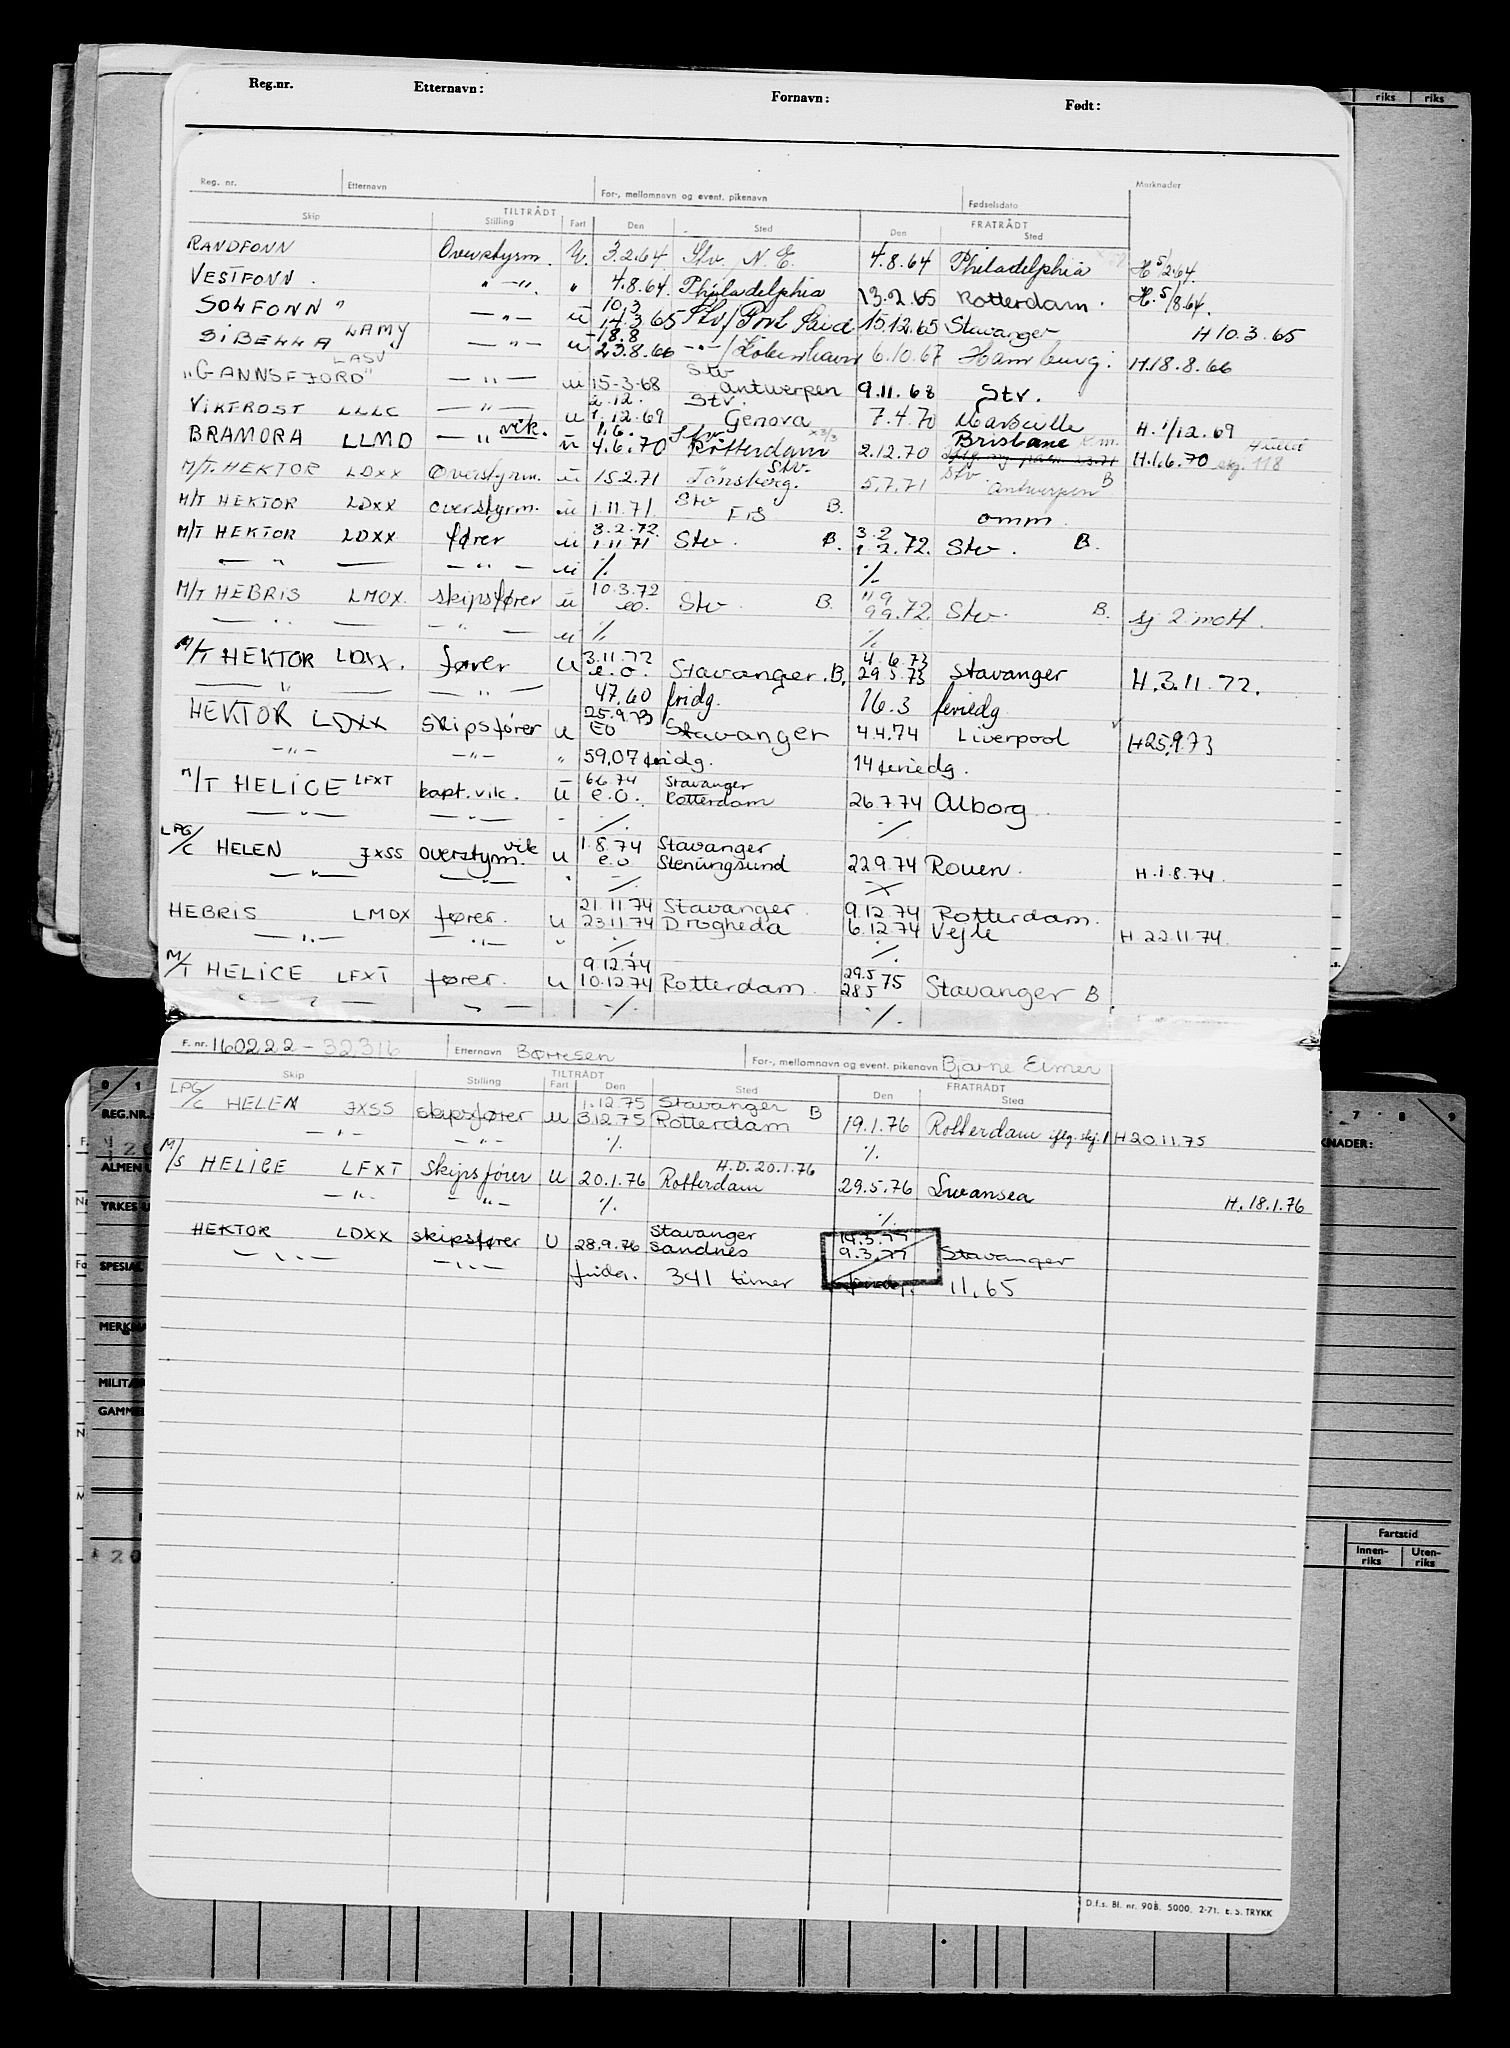 Reg.nr. Etternavn: Fornavn: Født: riks riks
Reg. nr. Etternavn For-, mellomnavn og event. pikenavn Fødselsdato Merknader
TILTRÅDT FRATRÅDT
Skip Stilling Fart Den Sted Den Sted
RANDFONN Overstyrm. U. 3.2.64 Stv. N.E. 4.8.64 Philadelphia H 5/2.64.
VESTFONN. " -"-. " 4.8.64. Philadelphia 13.2.65 Rotterdam. H. 5/8.64.
10.3
SOLFONN" -"- u 14.3.65 Stv/Port Said 15.12.65 Stavanger H 10.3.65
18.8
SIBELLA LAMY -"- u 23.8.66 -"-/København 6.10.67 Hamburg. H.18.8.66
LASV Stv
"GANNSFJORD" -"- u 15-3-68 Antwerpen 9.11.68 Stv.
2.12. Stv.
VIKFROST LLLC -"- u 1.12.69 Genova 7.4.70 Marseille H. 1/12.69
vik. 1.6. x3/3 Brisbane
BRAMORA LLMD -"- u 4.6.70 Rotterdam 2.12.70 H.1.6.70 118
Stv. Stv.
M/T. HEKTOR LDXX Overstyrm. u 15.2.71 Tönsberg. 5.7.71 Antwerpen B
M/T HEKTOR LDXX overstyrm. u 1.11.71. Stv FIS B. omm.
3.2.72. 3.2
M/T HEKTOR LDXX fører u 1.11.71 Stv. B. 1.2.72. Stv. B.
-"- -"- u % %
10.3.72 11.9
M/T HEBRIS LMOX. skipsfører u eo. Stv. B. 9.9.72. Stv. B. sj 2 mott.
-"- -"- u % %
3.11.72 4.6.73
M/T HEKTOR LDXX. fører u e.o. Stavanger. B. 29.5.73 Stavanger H.3.11.72.
-"- -"- 47.60 fridg. 16.3 feriedg.
25.9.73
HEKTOR LDXX skipsfører u EO Stavanger 4.4.74 Liverpool H25.9.73
-"- -"- " 59,07 fridg. 14 feriedg.
6.6.74 Stavanger
M/T HELICE LFXT kapt.vik. u e.o. Rotterdam 26.7.74 Ålborg
-"- -"- - % %
1.8.74 Stavanger
LPG/C HELEN JXSS overstyrm. vik u e.o Stenungsund 22.9.74 Rouen. H.1.8.74.
-"- -"- " % %
21.11.74 Stavanger 9.12.74 Rotterdam.
HEBRIS LMOX fører. u 23.11.74 Drogheda 6.12.74 Vejle H 22.11.74.
-"- -"- " % %
9.12.74 29.5
M/T HELICE LFXT fører. u 10.12.74 Rotterdam. 28.5 75 Stavanger B
-"- -"- % %
F. nr. 160222-32316 Etternavn Børresen For-, mellomnavn og event. pikenavn Bjarne Elmer
TILTRÅDT FRATRÅDT
Skip Stilling Fart Den Sted Den Sted
1.12.75 Stavanger
LPG/C HELEN JXSS skipsfører u 3.12.75 Rotterdam B 19.1.76 Rotterdam iflg. skj.1 H 20.11.75
-"- -"- % %
H.D. 20.1.76
M/S HELICE LFXT Skipsfører U 20.1.76 Rotterdam 29.5.76 Swansea H.18.1.76
-"- -"- % %
Stavanger 14.3.77
HEKTOR LDXX skipsfører U 28.9.76 Sandnes 9.3.77 Stavanger
-"- -"- fridg. 341 timer 11,65
D.f.s. Bl. nr. 90B. 5000. 2-71. E. S. TRYKK
0 1 7 8 9
REG.NR.
KNADER:
ALMEN U
YRKES U
SPESIAL
MERKNA
MILITÆ
GAMME
20
Fartstid
Innen-riks Uten-riks